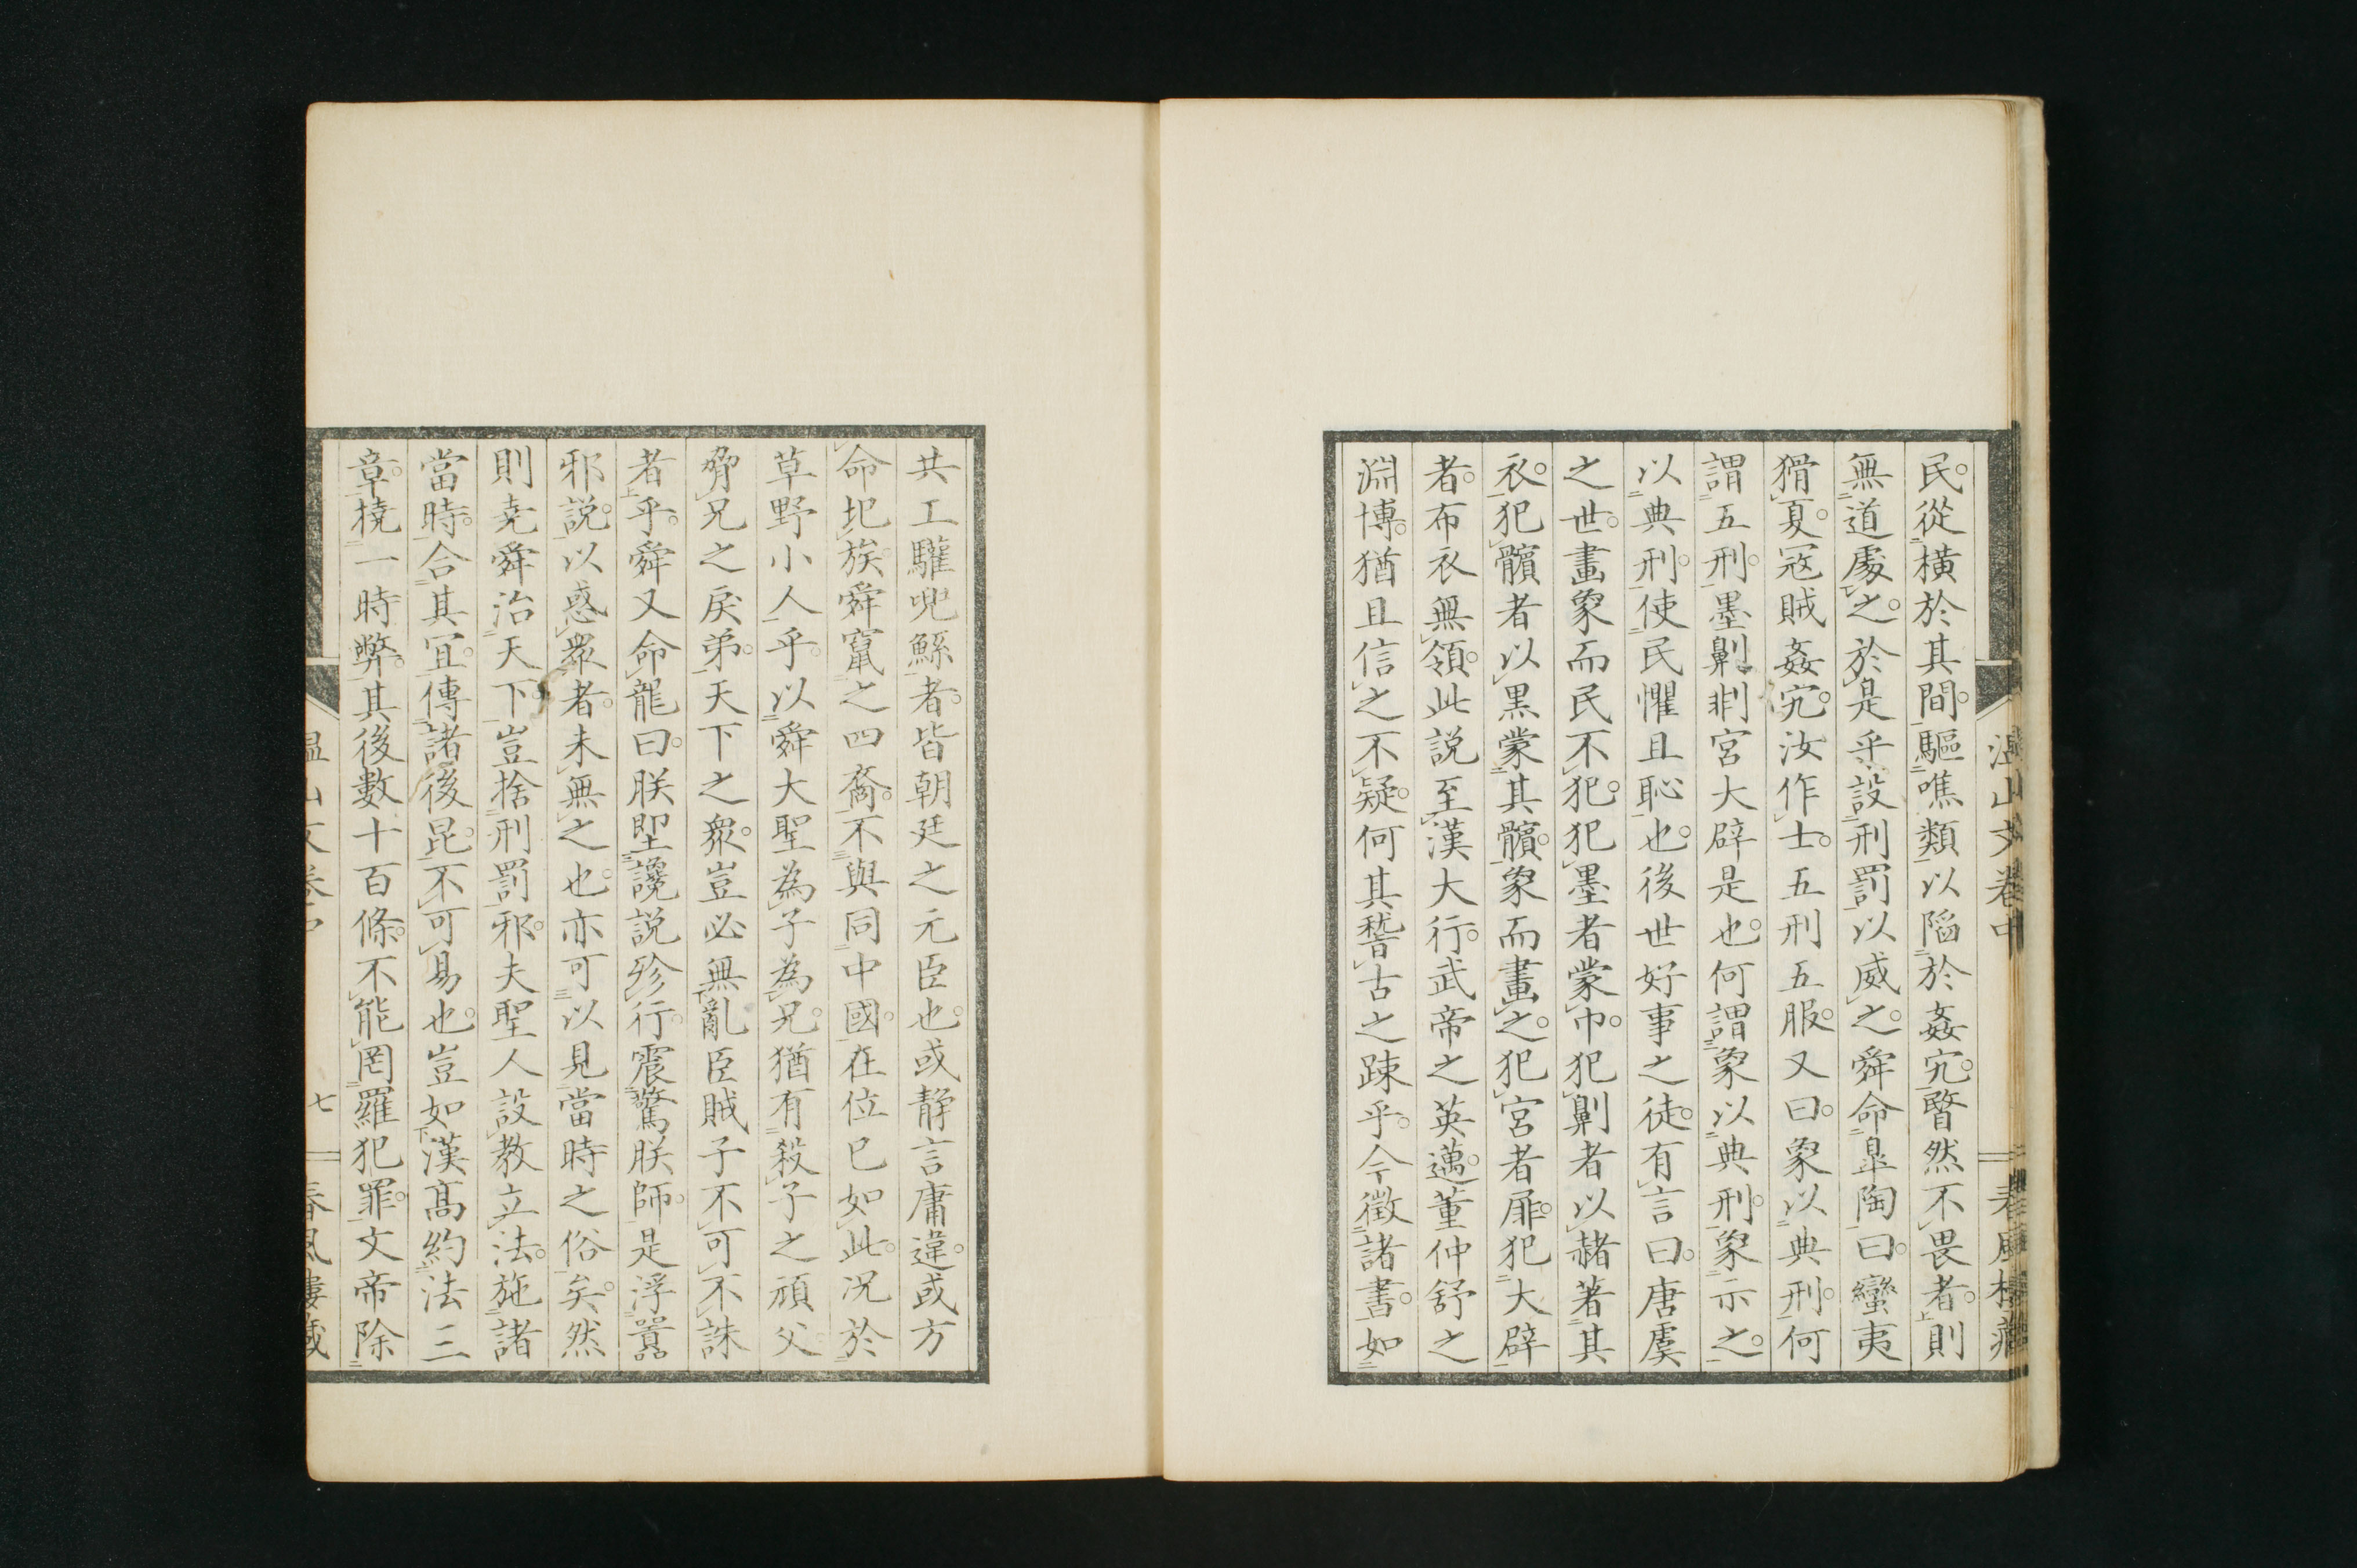 民從橫於其間驅噍類以陷於姦宄暋然不畏者則
無道處之於是乎設刑罰以威之舜命皐陶曰蠻夷
猾夏寇賊姦宄汝作士五刑五服又曰象以典刑何
謂五刑墨劓剕宮大辟是也何謂象以典刑象示之
以典刑使民懼且恥也後世好事之徒有言曰唐虞
之世畫象而民不犯犯墨者蒙巾犯劓者以赭著其
衣犯髕者以黒蒙其髕象而畫之犯宮者屝犯大辟
者布衣無領此説至漢大行武帝之英邁董仲舒之
淵博猶且信之不疑何其稽古之踈乎今徵諸書如
共工驩兜鯀者皆朝廷之元臣也或静言庸違或方
命圯族舜竄之四裔不與同中國在位已如此况於
草野小人乎以舜大聖為子為兄猶有殺子之頑父
脅兄之戻弟天下之衆豈必無亂臣賊子不可不誅
者乎舜又命龍曰朕堲讒説殄行震驚朕師是浮囂
邪説以惑衆者未無之也亦可以見當時之俗矣然
則堯舜治天下豈捨刑罰邪夫聖人設教立法施諸
當時合其宜傳諸後昆不可易也豈如漢髙約法三
章撓一時弊其後數十百條不能罔羅犯罪文帝除
温山文卷中
七
春風樓藏